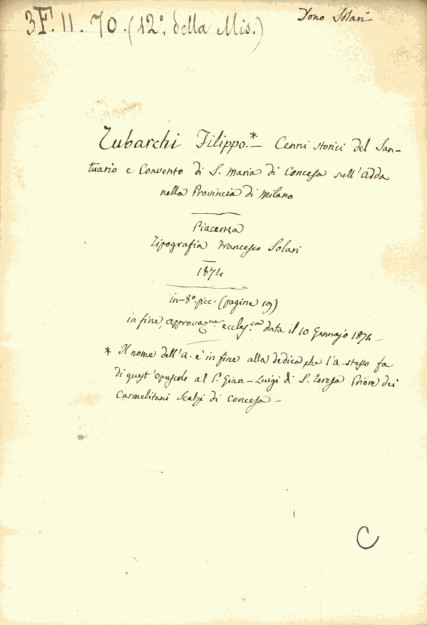 3F. II. 70. (12º. della Mis.)
Dono Solari
Zubarchi Filippo.*— Cenni storici del San-
tuario e Convento di S. Maria di Concesa sull'Adda
nella Provincia di Milano
Piacenza
Tipografia Francesco Solari
1874
in-8º. picc. (pagine 19)
in fine, approvaz.ne eccles.ca data il 10 Gennajo 1874.—
* Il nome dell'a. è in fine alla dedica che l'a. stesso fa
di quest'opuscolo al P. Gian-Luigi di S. Teresa Priore dei
Carmelitani Scalzi di Concesa—
C